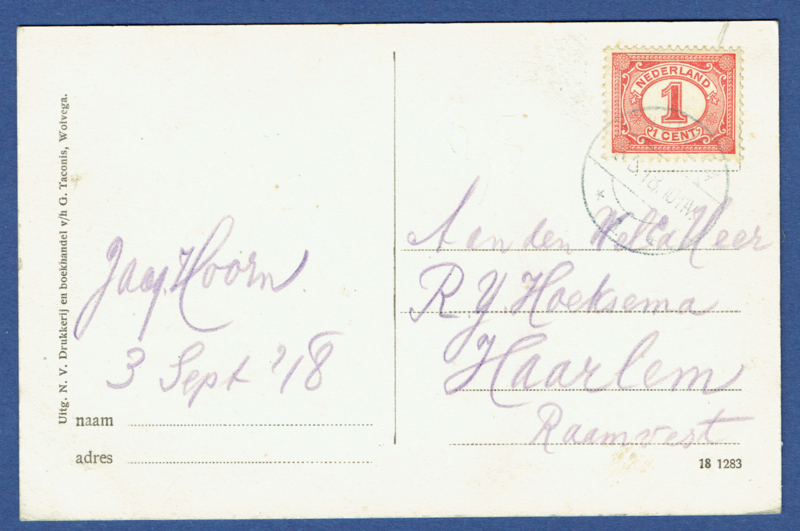 Uitg. N. V. Drukkerij en boekhandel v/h G. Taconis, Wolvega.
Jaap. Hoorn
3 Sept '18
naam
adres
NEDERLAND
1
1 CENT
Aan den WelEd Heer
R Y. Hoeksema
Haarlem
Raamvest
18 1283